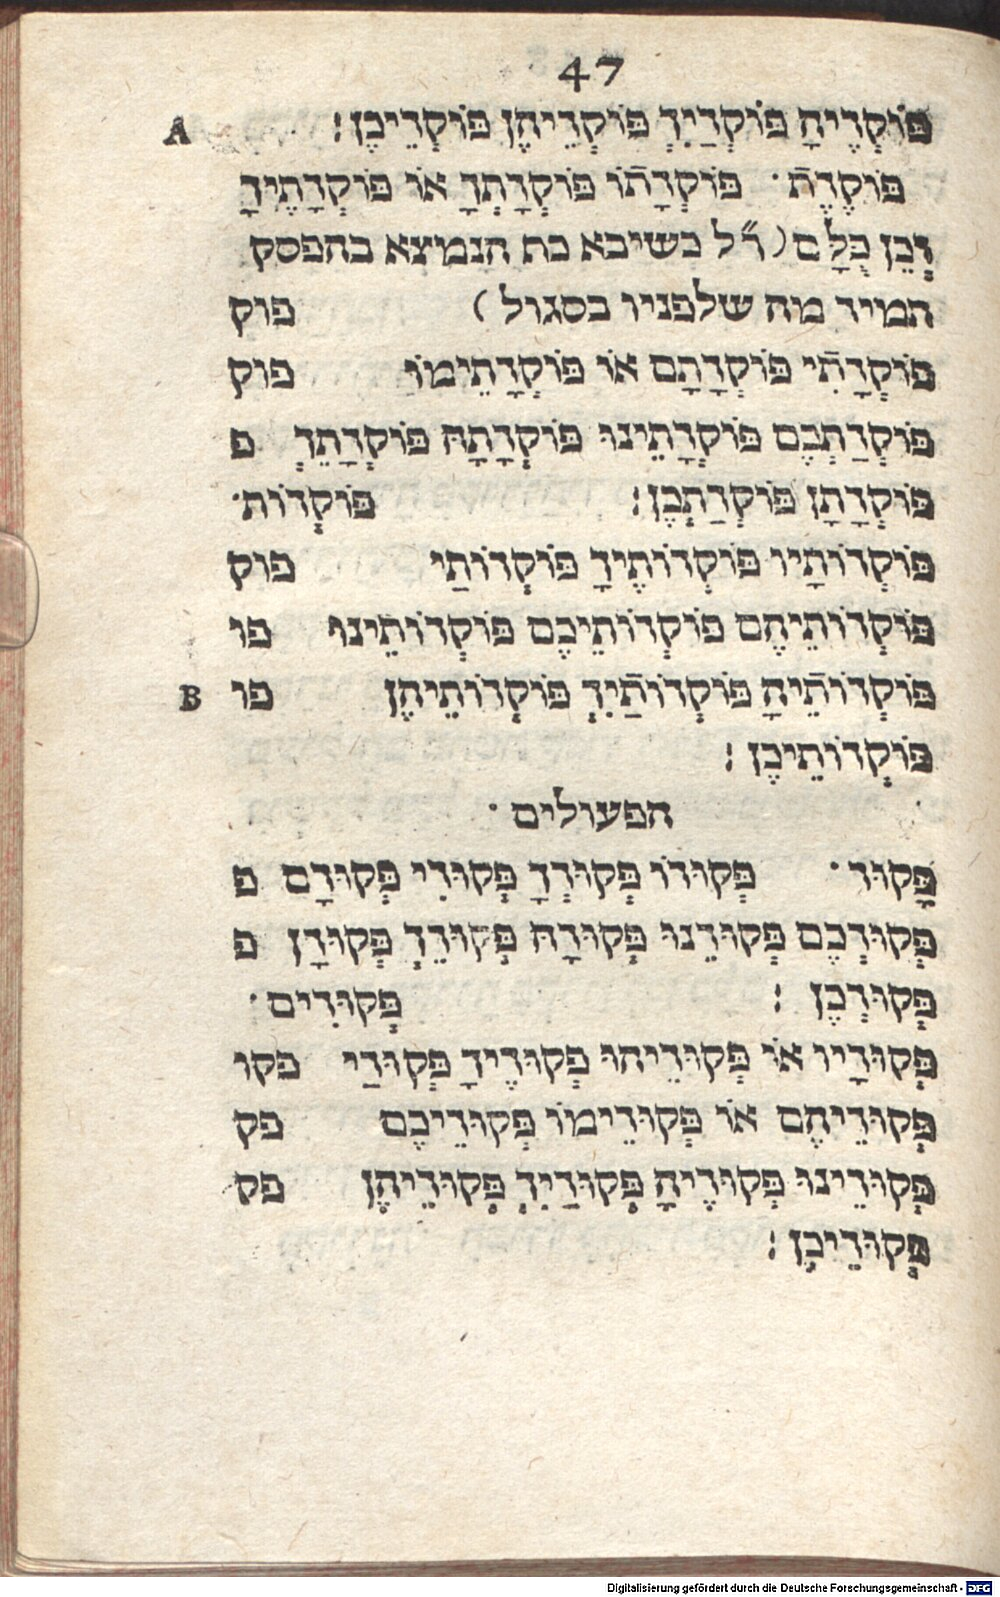 47
A פּוֹקְדֶיהָ פּוֹקְדַיִךְ פּוֹקְדֵיהֶן פּוֹקְדֵיכֶן:
פּוֹקֶדֶת· פּוֹקְדָתוֹ פּוֹקְדָתְךָ אוֹ פּוֹקְדָתֶיךָ
וְכֵן כֻּלָּם (ר״ל כשיבא כת הנמצא בהפסק
המיר מה שלפניו בסגול) פוק
פּוֹקְדָתִי פּוֹקְדָתָם אוֹ פּוֹקְדָתֵימוֹ פוק
פּוֹקְדַתְכֶם פּוֹקְדָתֵינוּ פּוֹקְדָתָהּ פּוֹקְדָתֵךְ פ
פּוֹקְדָתָן פּוֹקְדַתְכֶן: פּוֹקְדוֹת·
פּוֹקְדוֹתָיו פּוֹקְדוֹתֶיךָ פּוֹקְדוֹתַי פוק
פּוֹקְדוֹתֵיהֶם פּוֹקְדוֹתֵיכֶם פּוֹקְדוֹתֵינוּ פו
B פּוֹקְדוֹתֶיהָ פּוֹקְדוֹתַיִךְ פּוֹקְדוֹתֵיהֶן פו
פּוֹקְדוֹתֵיכֶן:
הפעולים·
פָּקוּד· פְּקוּדוֹ פְּקוּדְךָ פְּקוּדִי פְּקוּדָם פ
פְּקוּדְכֶם פְּקוּדֵנוּ פְּקוּדָהּ פְּקוּדֵךְ פְּקוּדָן פ
פְּקוּדְכֶן: פְּקוּדִים·
פְּקוּדָיו אוֹ פְּקוּדֵיהוּ פְּקוּדֶיךָ פְּקוּדַי פקו
פְּקוּדֵיהֶם אוֹ פְּקוּדֵימוֹ פְּקוּדֵיכֶם פק
פְּקוּדֵינוּ פְּקוּדֶיהָ פְּקוּדַיִךְ פְּקוּדֵיהֶן פק
פְּקוּדֵיכֶן:
Digitalisierung gefördert durch die Deutsche Forschungsgemeinschaft - DFG